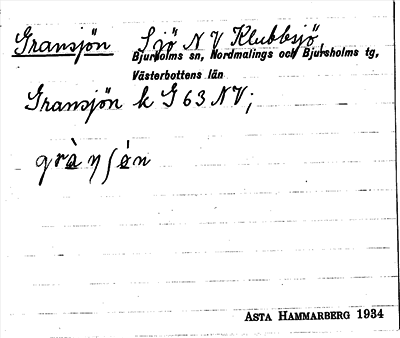 Gransjön Sjö N V Klubbsjö,
Bjurholms sn, Nordmalings och Bjurholms tg,
Västerbottens län
Gransjön k G 63 NV;
grànʃön
ASTA HAMMARBERG 1934